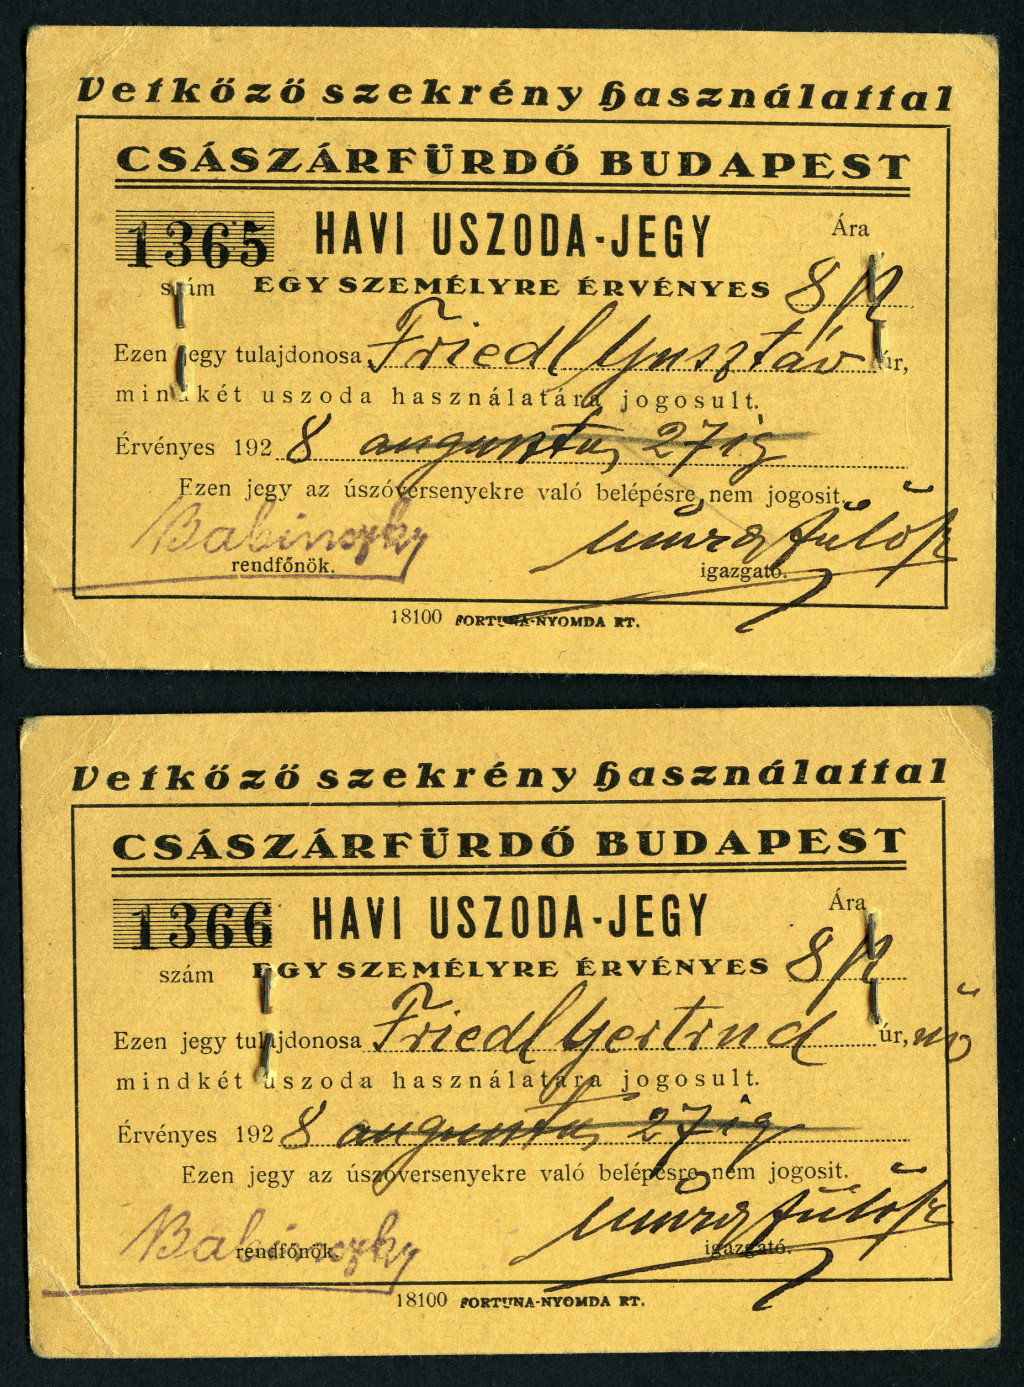 Vetkőző szekrény használattal
CSÁSZÁRFÜRDŐ BUDAPEST
1365
HAVI USZODA-JEGY
Ára
szám
EGY SZEMÉLYRE ÉRVÉNYES
8 P
Ezen jegy tulajdonosa Friedl Gusztáv úr,
mindkét uszoda használatára jogosult.
Érvényes 1928 augusztus 27ig
Ezen jegy az úszóversenyekre való belépésre nem jogosit.
Babinszky
rendfőnök.
igazgató.
18100 FORTUNA-NYOMDA RT.
Vetkőző szekrény használattal
CSÁSZÁRFÜRDŐ BUDAPEST
1366
HAVI USZODA-JEGY
Ára
szám
EGY SZEMÉLYRE ÉRVÉNYES
8 P
Ezen jegy tulajdonosa Friedl Gertrud úr, nő
mindkét uszoda használatára jogosult.
Érvényes 1928 augusztus 27ig
Ezen jegy az úszóversenyekre való belépésre nem jogosit.
Babinszky
rendfőnök.
igazgató.
18100 FORTUNA-NYOMDA RT.